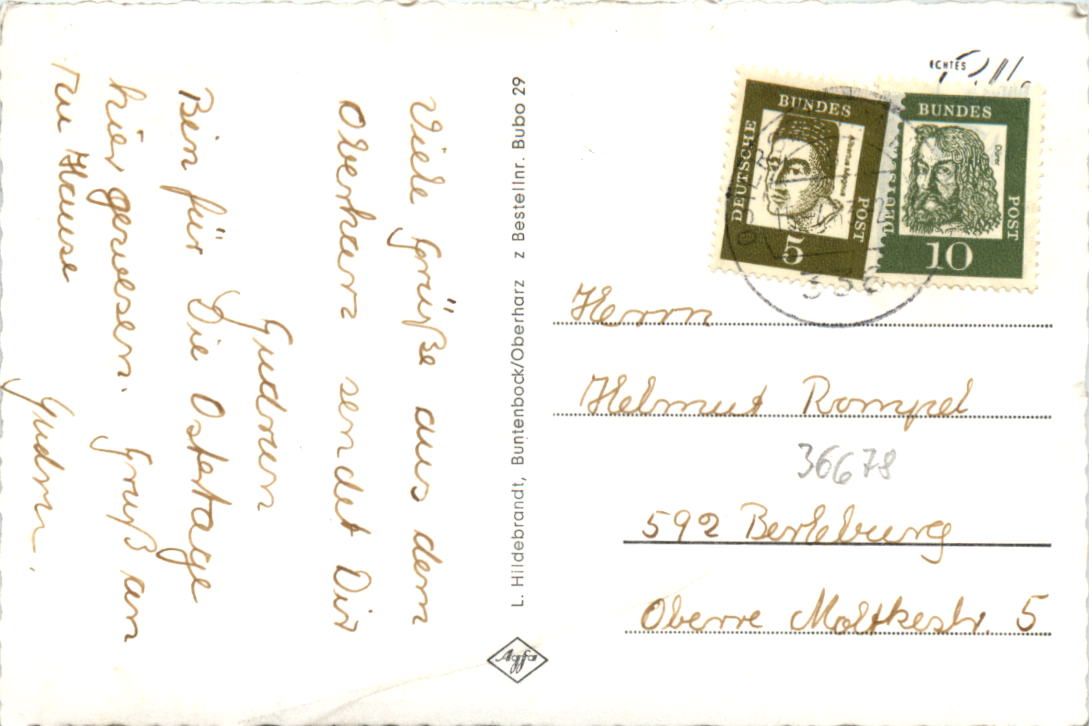 Viele Grüße aus dem
Oberharz sendet Dir
Gudrun
Bin für Die Ostertage
hier gewesen. Gruß an
zu Hause
Gudrun.
L. Hildebrandt, Buntenbock/Oberharz z Bestellnr. Bubo 29
Agfa
ECHTES
DEUTSCHE
BUNDES
POST
Albertus Magnus
5
DEUTSCHE
BUNDES
POST
Dürer
10
Herrn
Helmut Rompel
36678
592 Berleburg
Oberre Moltkestr. 5